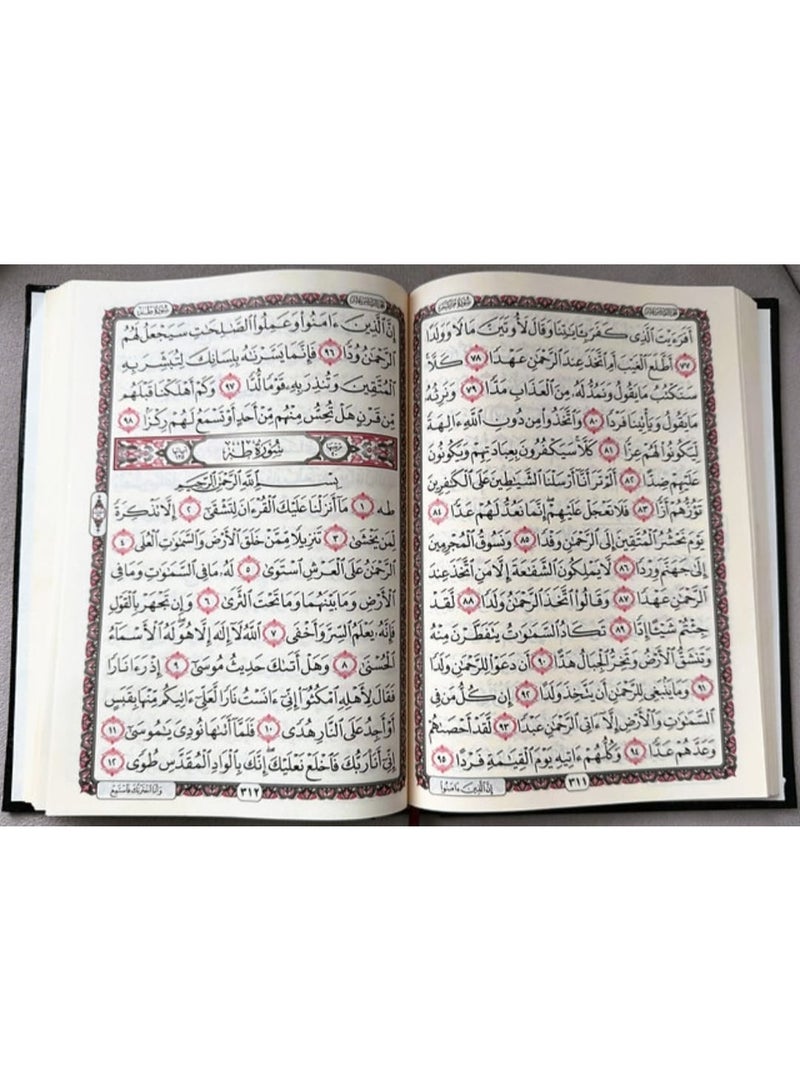 أَفَرَءَيْتَ ٱلَّذِى كَفَرَ بِـَٔايَـٰتِنَا وَقَالَ لَأُوتَيَنَّ مَالًا وَوَلَدًا
٧٧ أَطَّلَعَ ٱلْغَيْبَ أَمِ ٱتَّخَذَ عِندَ ٱلرَّحْمَـٰنِ عَهْدًا ٧٨ كَلَّا
سَنَكْتُبُ مَا يَقُولُ وَنَمُدُّ لَهُۥ مِنَ ٱلْعَذَابِ مَدًّا ٧٩ وَنَرِثُهُۥ
مَا يَقُولُ وَيَأْتِينَا فَرْدًا ٨٠ وَٱتَّخَذُوا۟ مِن دُونِ ٱللَّهِ ءَالِهَةً
لِّيَكُونُوا۟ لَهُمْ عِزًّا ٨١ كَلَّا سَيَكْفُرُونَ بِعِبَادَتِهِمْ وَيَكُونُونَ
عَلَيْهِمْ ضِدًّا ٨٢ أَلَمْ تَرَ أَنَّآ أَرْسَلْنَا ٱلشَّيَـٰطِينَ عَلَى ٱلْكَـٰفِرِينَ
تَؤُزُّهُمْ أَزًّا ٨٣ فَلَا تَعْجَلْ عَلَيْهِمْ إِنَّمَا نَعُدُّ لَهُمْ عَدًّا ٨٤
يَوْمَ نَحْشُرُ ٱلْمُتَّقِينَ إِلَى ٱلرَّحْمَـٰنِ وَفْدًا ٨٥ وَنَسُوقُ ٱلْمُجْرِمِينَ
إِلَىٰ جَهَنَّمَ وِرْدًا ٨٦ لَّا يَمْلِكُونَ ٱلشَّفَـٰعَةَ إِلَّا مَنِ ٱتَّخَذَ عِندَ
ٱلرَّحْمَـٰنِ عَهْدًا ٨٧ وَقَالُوا۟ ٱتَّخَذَ ٱلرَّحْمَـٰنُ وَلَدًا ٨٨ لَّقَدْ
جِئْتُمْ شَيْـًٔا إِدًّا ٨٩ تَكَادُ ٱلسَّمَـٰوَٰتُ يَتَفَطَّرْنَ مِنْهُ
وَتَنشَقُّ ٱلْأَرْضُ وَتَخِرُّ ٱلْجِبَالُ هَدًّا ٩٠ أَن دَعَوْا۟ لِلرَّحْمَـٰنِ وَلَدًا
٩١ وَمَا يَنۢبَغِى لِلرَّحْمَـٰنِ أَن يَتَّخِذَ وَلَدًا ٩٢ إِن كُلُّ مَن فِى
ٱلسَّمَـٰوَٰتِ وَٱلْأَرْضِ إِلَّآ ءَاتِى ٱلرَّحْمَـٰنِ عَبْدًا ٩٣ لَّقَدْ أَحْصَىٰهُمْ
وَعَدَّهُمْ عَدًّا ٩٤ وَكُلُّهُمْ ءَاتِيهِ يَوْمَ ٱلْقِيَـٰمَةِ فَرْدًا ٩٥
٣١١
إِنَّ ٱلَّذِينَ ءَامَنُوا۟
سُورَةُ طه
إِنَّ ٱلَّذِينَ ءَامَنُوا۟ وَعَمِلُوا۟ ٱلصَّـٰلِحَـٰتِ سَيَجْعَلُ لَهُمُ
ٱلرَّحْمَـٰنُ وُدًّا ٩٦ فَإِنَّمَا يَسَّرْنَـٰهُ بِلِسَانِكَ لِتُبَشِّرَ بِهِ
ٱلْمُتَّقِينَ وَتُنذِرَ بِهِۦ قَوْمًا لُّدًّا ٩٧ وَكَمْ أَهْلَكْنَا قَبْلَهُم
مِّن قَرْنٍ هَلْ تُحِسُّ مِنْهُم مِّنْ أَحَدٍ أَوْ تَسْمَعُ لَهُمْ رِكْزًۢا ٩٨
سُورَةُ طه
بِسْمِ ٱللَّهِ ٱلرَّحْمَـٰنِ ٱلرَّحِيمِ
طه ١ مَآ أَنزَلْنَا عَلَيْكَ ٱلْقُرْءَانَ لِتَشْقَىٰٓ ٢ إِلَّا تَذْكِرَةً
لِّمَن يَخْشَىٰ ٣ تَنزِيلًا مِّمَّنْ خَلَقَ ٱلْأَرْضَ وَٱلسَّمَـٰوَٰتِ ٱلْعُلَى ٤
ٱلرَّحْمَـٰنُ عَلَى ٱلْعَرْشِ ٱسْتَوَىٰ ٥ لَهُۥ مَا فِى ٱلسَّمَـٰوَٰتِ وَمَا فِى
ٱلْأَرْضِ وَمَا بَيْنَهُمَا وَمَا تَحْتَ ٱلثَّرَىٰ ٦ وَإِن تَجْهَرْ بِٱلْقَوْلِ
فَإِنَّهُۥ يَعْلَمُ ٱلسِّرَّ وَأَخْفَى ٧ ٱللَّهُ لَآ إِلَـٰهَ إِلَّا هُوَ لَهُ ٱلْأَسْمَآءُ
ٱلْحُسْنَىٰ ٨ وَهَلْ أَتَىٰكَ حَدِيثُ مُوسَىٰٓ ٩ إِذْ رَءَا نَارًا
فَقَالَ لِأَهْلِهِ ٱمْكُثُوٓا۟ إِنِّىٓ ءَانَسْتُ نَارًا لَّعَلِّىٓ ءَاتِيكُم مِّنْهَا بِقَبَسٍ
أَوْ أَجِدُ عَلَى ٱلنَّارِ هُدًى ١٠ فَلَمَّآ أَتَىٰهَا نُودِىَ يَـٰمُوسَىٰٓ ١١
إِنِّىٓ أَنَا۠ رَبُّكَ فَٱخْلَعْ نَعْلَيْكَ إِنَّكَ بِٱلْوَادِ ٱلْمُقَدَّسِ طُوًى ١٢
٣١٢
وَأَنَا ٱخْتَرْتُكَ فَٱسْتَمِعْ